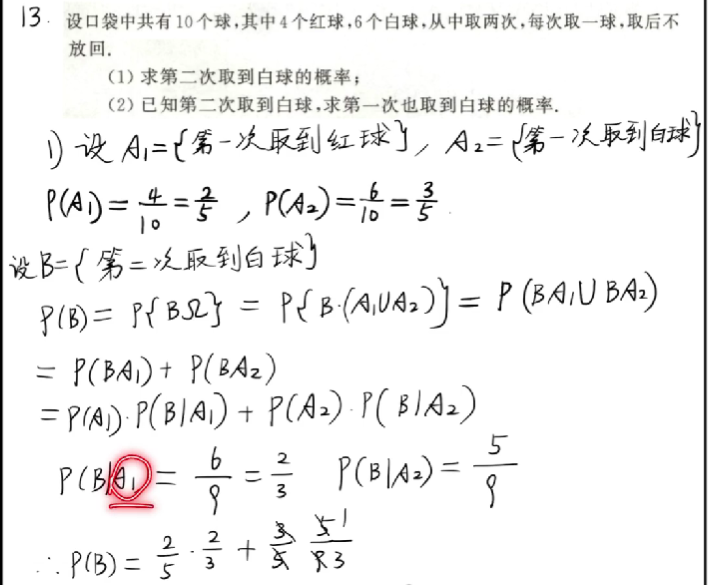 13. 设口袋中共有10个球,其中4个红球,6个白球,从中取两次,每次取一球,取后不
放回.
(1) 求第二次取到白球的概率;
(2) 已知第二次取到白球,求第一次也取到白球的概率.
1) 设 A₁={第一次取到红球}, A₂={第一次取到白球}
P(A₁)=4/10=2/5 , P(A₂)=6/10=3/5.
设B={第二次取到白球}
P(B)= P{BΩ} = P{B·(A₁∪A₂)}= P(BA₁∪BA₂)
= P(BA₁)+ P(BA₂)
=P(A₁)·P(B|A₁)+ P(A₂)·P(B|A₂)
P(B|A₁)= 6/9 = 2/3 P(B|A₂)= 5/9
∴P(B)= 2/5 · 2/3 + 3/5 5/9 1 3